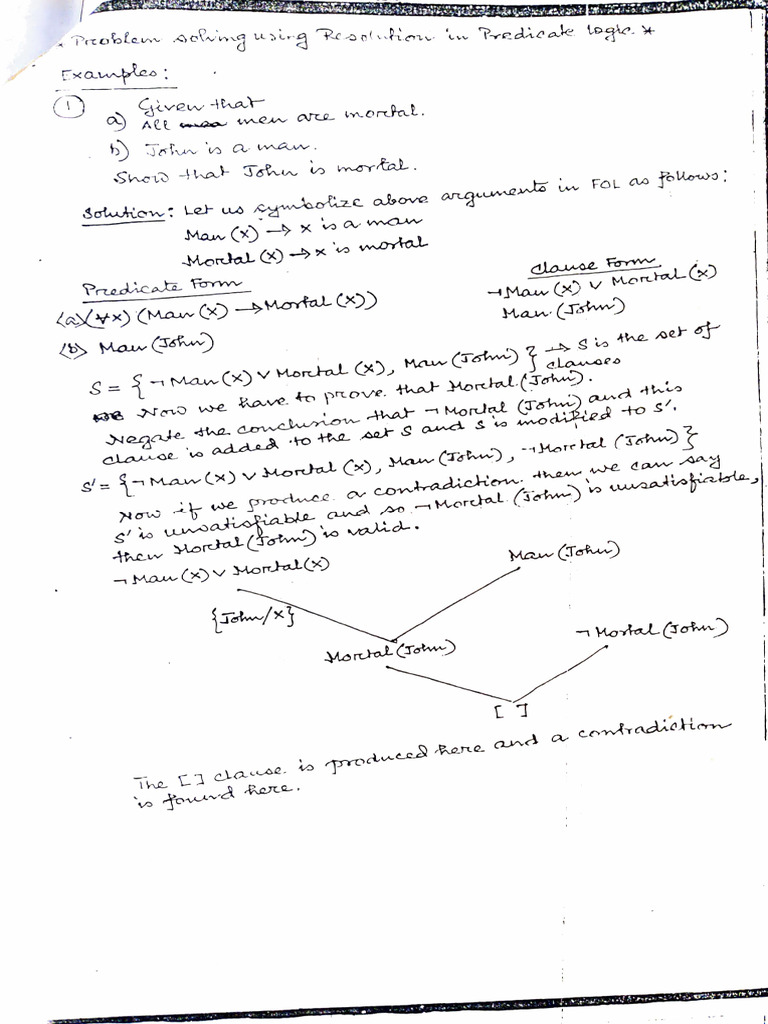 * Problem solving using Resolution in Predicate logic *
Examples:
① Given that
a) All men are mortal.
b) John is a man.
Show that John is mortal.
Solution: Let us symbolize above arguments in FOL as follows:
Man (x) → x is a man
Mortal (x) → x is mortal
Predicate Form
Clause Form
(a) (∀x) (Man (x) → Mortal (x))
¬Man (x) ∨ Mortal (x)
(b) Man (John)
Man (John)
S = {¬Man (x) ∨ Mortal (x), Man (John)} → S is the set of clauses
Now we have to prove that Mortal (John).
Negate the conclusion that ¬Mortal (John) and this
clause is added to the set S and S is modified to S'.
S' = {¬Man (x) ∨ Mortal (x), Man (John), ¬Mortal (John)}
Now if we produce a contradiction then we can say
S' is unsatisfiable and so ¬Mortal (John) is unsatisfiable,
then Mortal (John) is valid.
¬Man (x) ∨ Mortal (x)
Man (John)
{John/x}
Mortal (John)
¬Mortal (John)
[ ]
The [ ] clause is produced here and a contradiction
is found here.